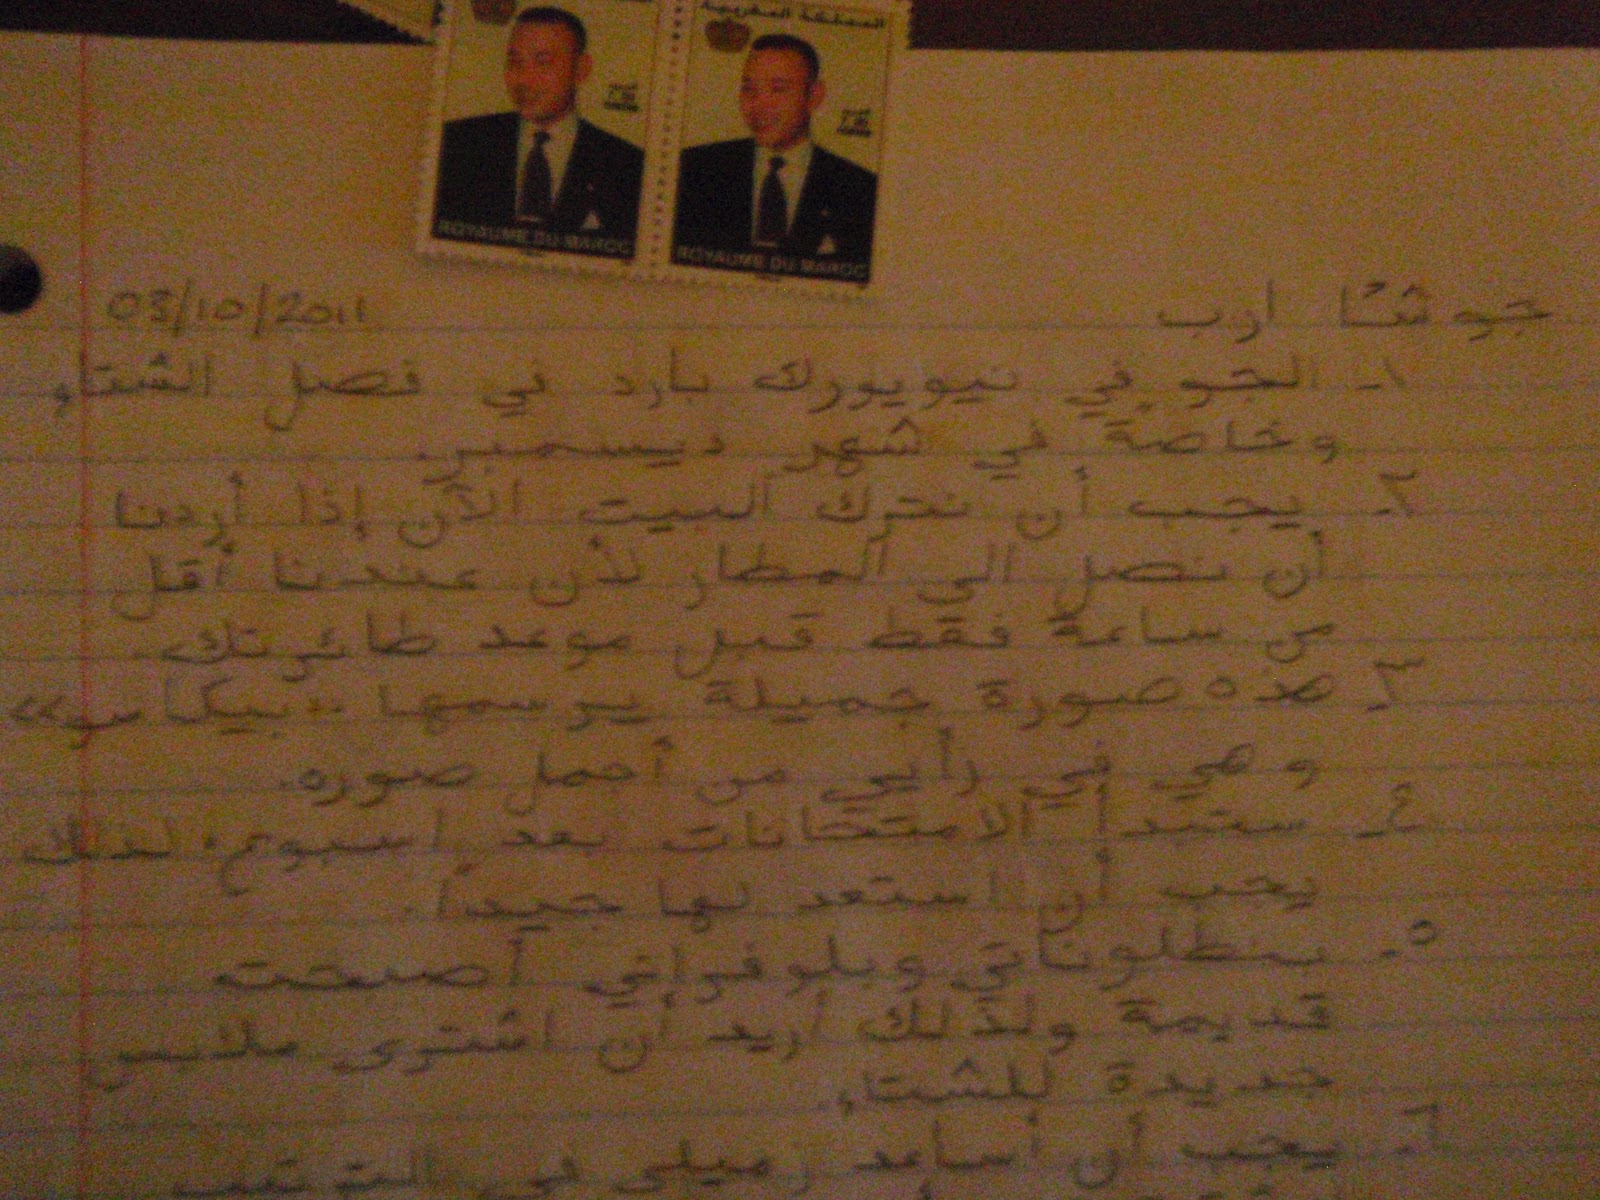 المملكة المغربية
ROYAUME DU MAROC
ROYAUME DU MAROC
03/10/2011
١- الجو في نيويورك بارد في فصل الشتاء
وخاصةً في شهر ديسمبر.
٢- يجب أن نترك البيت الآن إذا أردنا
أن نصل الى المطار لأن عندنا أقل
من ساعة فقط قبل موعد طائرتك.
٣- هذه صورة جميلة يرسمها "بيكاسو"
وهي في رأيي من أجمل صوره.
٤- ستبدأ الامتحانات بعد اسبوع، لذلك
يجب أن استعد لها جيداً.
٥- بنطلوناتي وبلوفراتي أصبحت
قديمة ولذلك اريد أن اشترى ملابس
جديدة للشتاء.
٦- يجب أن أساعد زميلي في